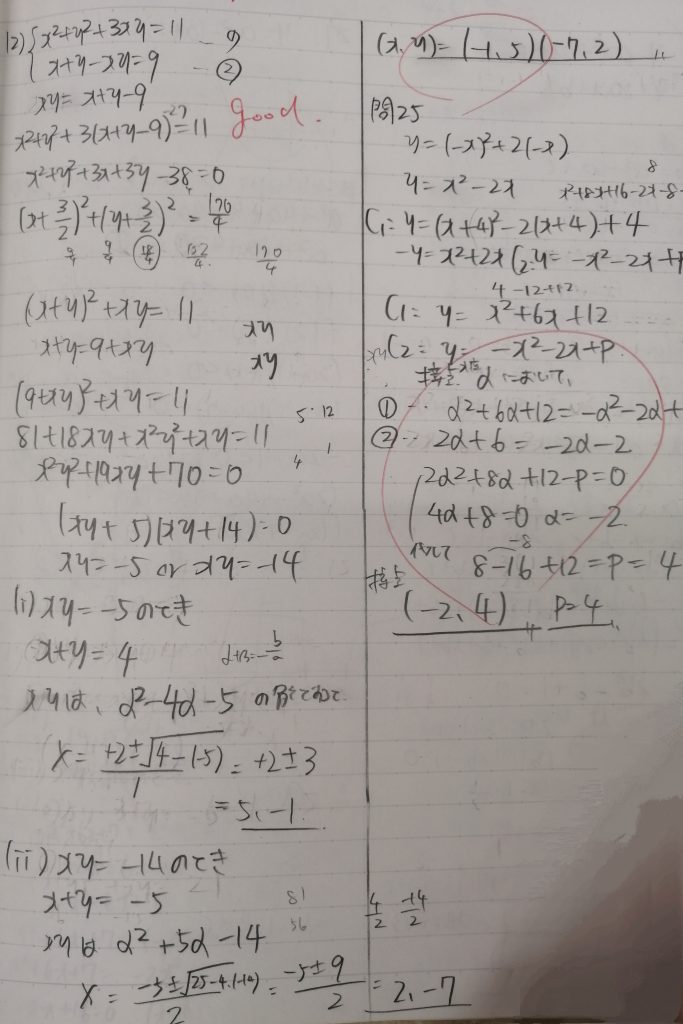 (2) { x²+y²+3xy=11 …①
x+y-xy=9 …②
xy=x+y-9
x²+y²+3(x+y-9)=11
-27
good.
x²+y²+3x+3y-38=0
(x+3/2)²+(y+3/2)²=170/4
9/4 9/4 18/4 152/4 170/4
(x+y)²+xy=11
x+y=9+xy
xy
xy
(9+xy)²+xy=11
81+18xy+x²y²+xy=11
5・12
x²y²+19xy+70=0
4 1
(xy+5)(xy+14)=0
xy=-5 or xy=-14
(i) xy=-5のとき
x+y=4
α+β=-b/a
xyは、α²-4α-5 の
x=(+2±√(4-(-5)))/1=+2±3
=5、-1
(ii) xy=-14のとき
x+y=-5
81
56
xyは α²+5α-14
x=(-5±√(25-4・(-14)))/2=(-5±9)/2=2、-7
(x,y)=(-1,5)(-7,2)
問25
y=(-x)²+2(-x)
8
y=x²-2x
x²+8x+16-2x-8
C₁=y=(x+4)²-2(x+4)+4
-y=x²+2x C₂:y=-x²-2x+p
4-12+12
C₁=y=x²+6x+12
C₂=y=-x²-2x+p
接点x座標 αにおいて、
①… α²+6α+12=-α²-2α+
②… 2α+6=-2α-2
2α²+8α+12-p=0
4α+8=0 α=-2
-8
代入して 8-16+12=p=4
接点
(-2、4) p=4
4/2 -14/2